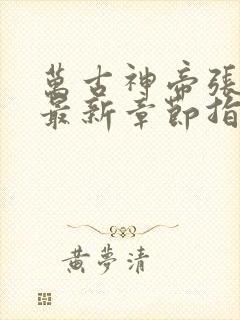 萬古神帝張
最新章節指
黃夢清